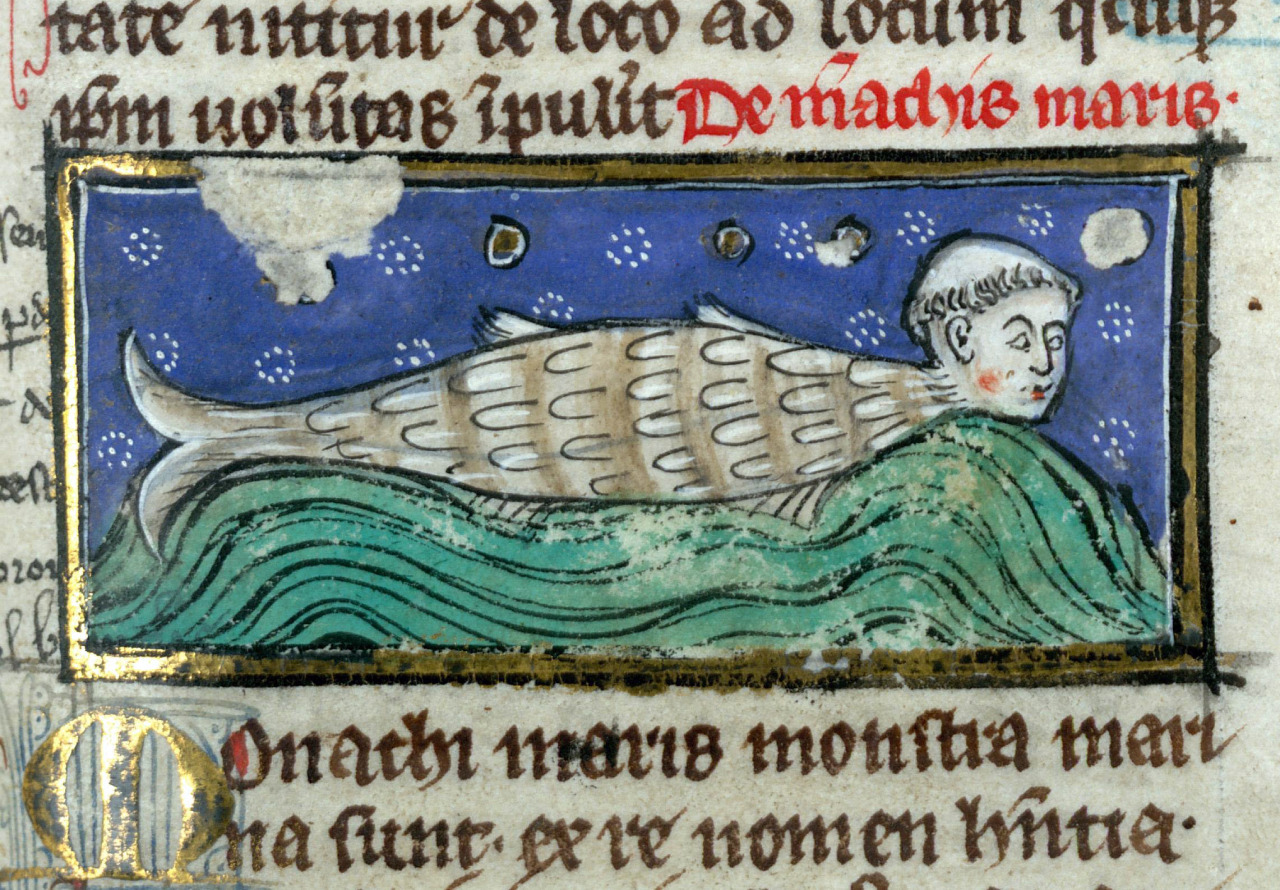 tate nititur de loco ad locum qcūq;
ip̄m uolūtas īpulit De m̄achis maris.
Monachi maris monstra mari
na sunt. ex re nomen hn̄tia.